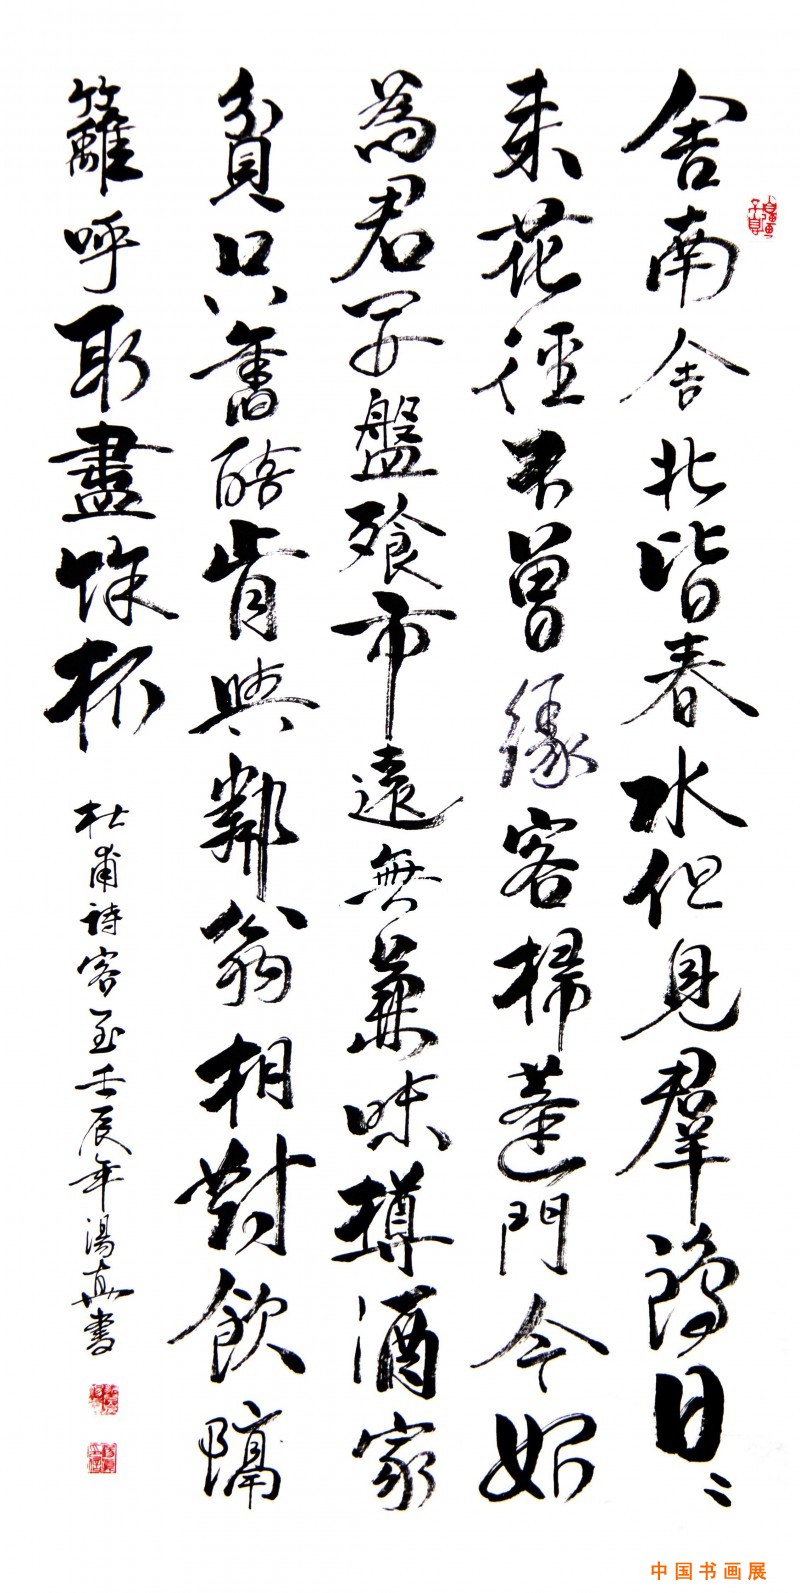 舍南舍北皆春水但見羣鷗日〻
来花徑不曾緣客掃蓬門今始
為君开盤飱市遠無兼味樽酒家
貧只舊醅肯與鄰翁相對飲隔
籬呼取盡馀杯
杜甫詩客至壬辰年湯真書
中国书画展